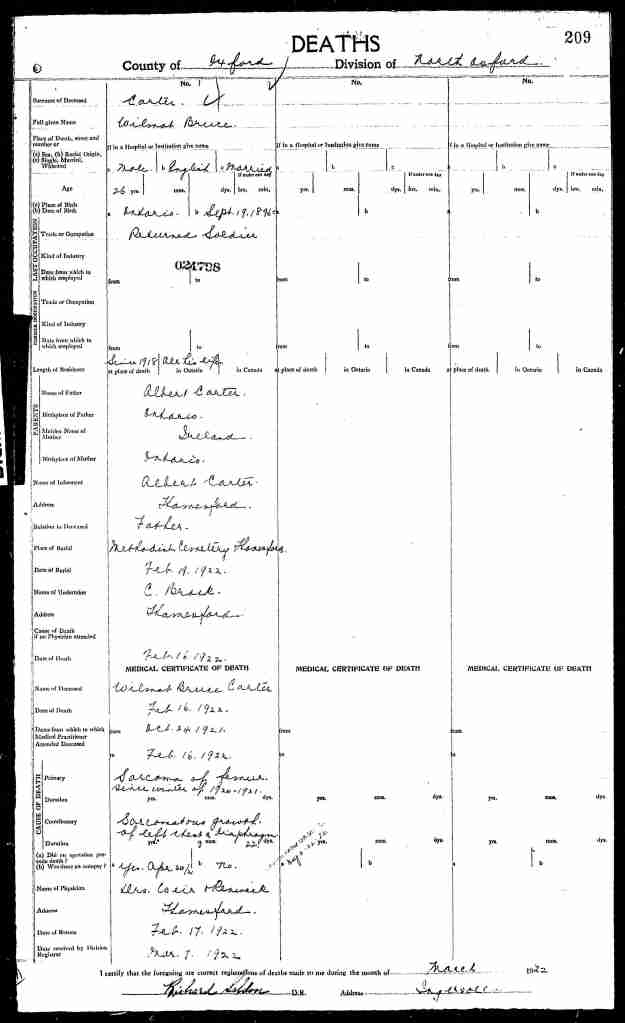 DEATHS
209
County of Oxford Division of North Oxford
No. 1 No. No.
Surname of Deceased Carter
Full given Name Wilmot Bruce
Place of Death, name and number or If in a Hospital or Institution give name If in a Hospital or Institution give name If in a Hospital or Institution give name
(a) Sex, (b) Racial Origin, (c) Single, Married, Widowed a Male b English c Married a b c b c
If under one day If under one day If under one day
Age 26 yrs. mos. dys. hrs. min. yrs. mos. dys. hrs. min. yrs. mos. dys. hrs. min.
(a) Place of Birth
(b) Date of Birth a Ontario. b Sept. 19, 1896 b b
LAST OCCUPATION
Trade or Occupation Returned Soldier
Kind of Industry
024798
Date from which to which employed from to from to from to
FORMER OCCUPATION
Trade or Occupation
Kind of Industry
Date from which to which employed from to from to from to
Since 1918 All his life
Length of Residence at place of death in Ontario in Canada at place of death in Ontario in Canada at place of death in Ontario in Canada
PARENTS
Name of Father Albert Carter.
Birthplace of Father Ontario.
Maiden Name of Mother Ireland.
Birthplace of Mother Ontario.
Name of Informant Albert Carter.
Address Thamesford.
Relation to Deceased Father.
Place of Burial Methodist Cemetery Thamesford
Date of Burial Feb 19. 1922.
Name of Undertaker C. Brock.
Address Thamesford
Cause of Death if no Physician attended
Date of Death Feb. 16. 1922.
MEDICAL CERTIFICATE OF DEATH MEDICAL CERTIFICATE OF DEATH MEDICAL CERTIFICATE OF DEATH
Name of Deceased Wilmot Bruce Carter
Date of Death Feb 16. 1922.
Dates from which to which Medical Practitioner Attended Deceased from Oct. 24 1921. from from
to Feb. 16. 1922. to to
CAUSE OF DEATH
Primary Sarcoma of femur.
since winter of 1920-1921.
Duration yrs. mos. dys. yrs. mos. dys. yrs. mos. dys.
Contributory Sarcomatous growth.
of left chest & diaphragm
Duration yrs. 9 mos. 22 dys. yrs. mos. dys. yrs. mos. dys.
(a) Did an operation precede death?
(b) Was there an autopsy? a Yes. Apr 20/21 b No. b b
Name of Physician Drs. Weir & Renwick
Address Thamesford.
Date of Return Feb. 17. 1922.
Date received by Division Registrar Mar. 7. 1922
I certify that the foregoing are correct registrations of deaths made to me during the month of March 1922
Richard Seldon D.R. Address Ingersoll.